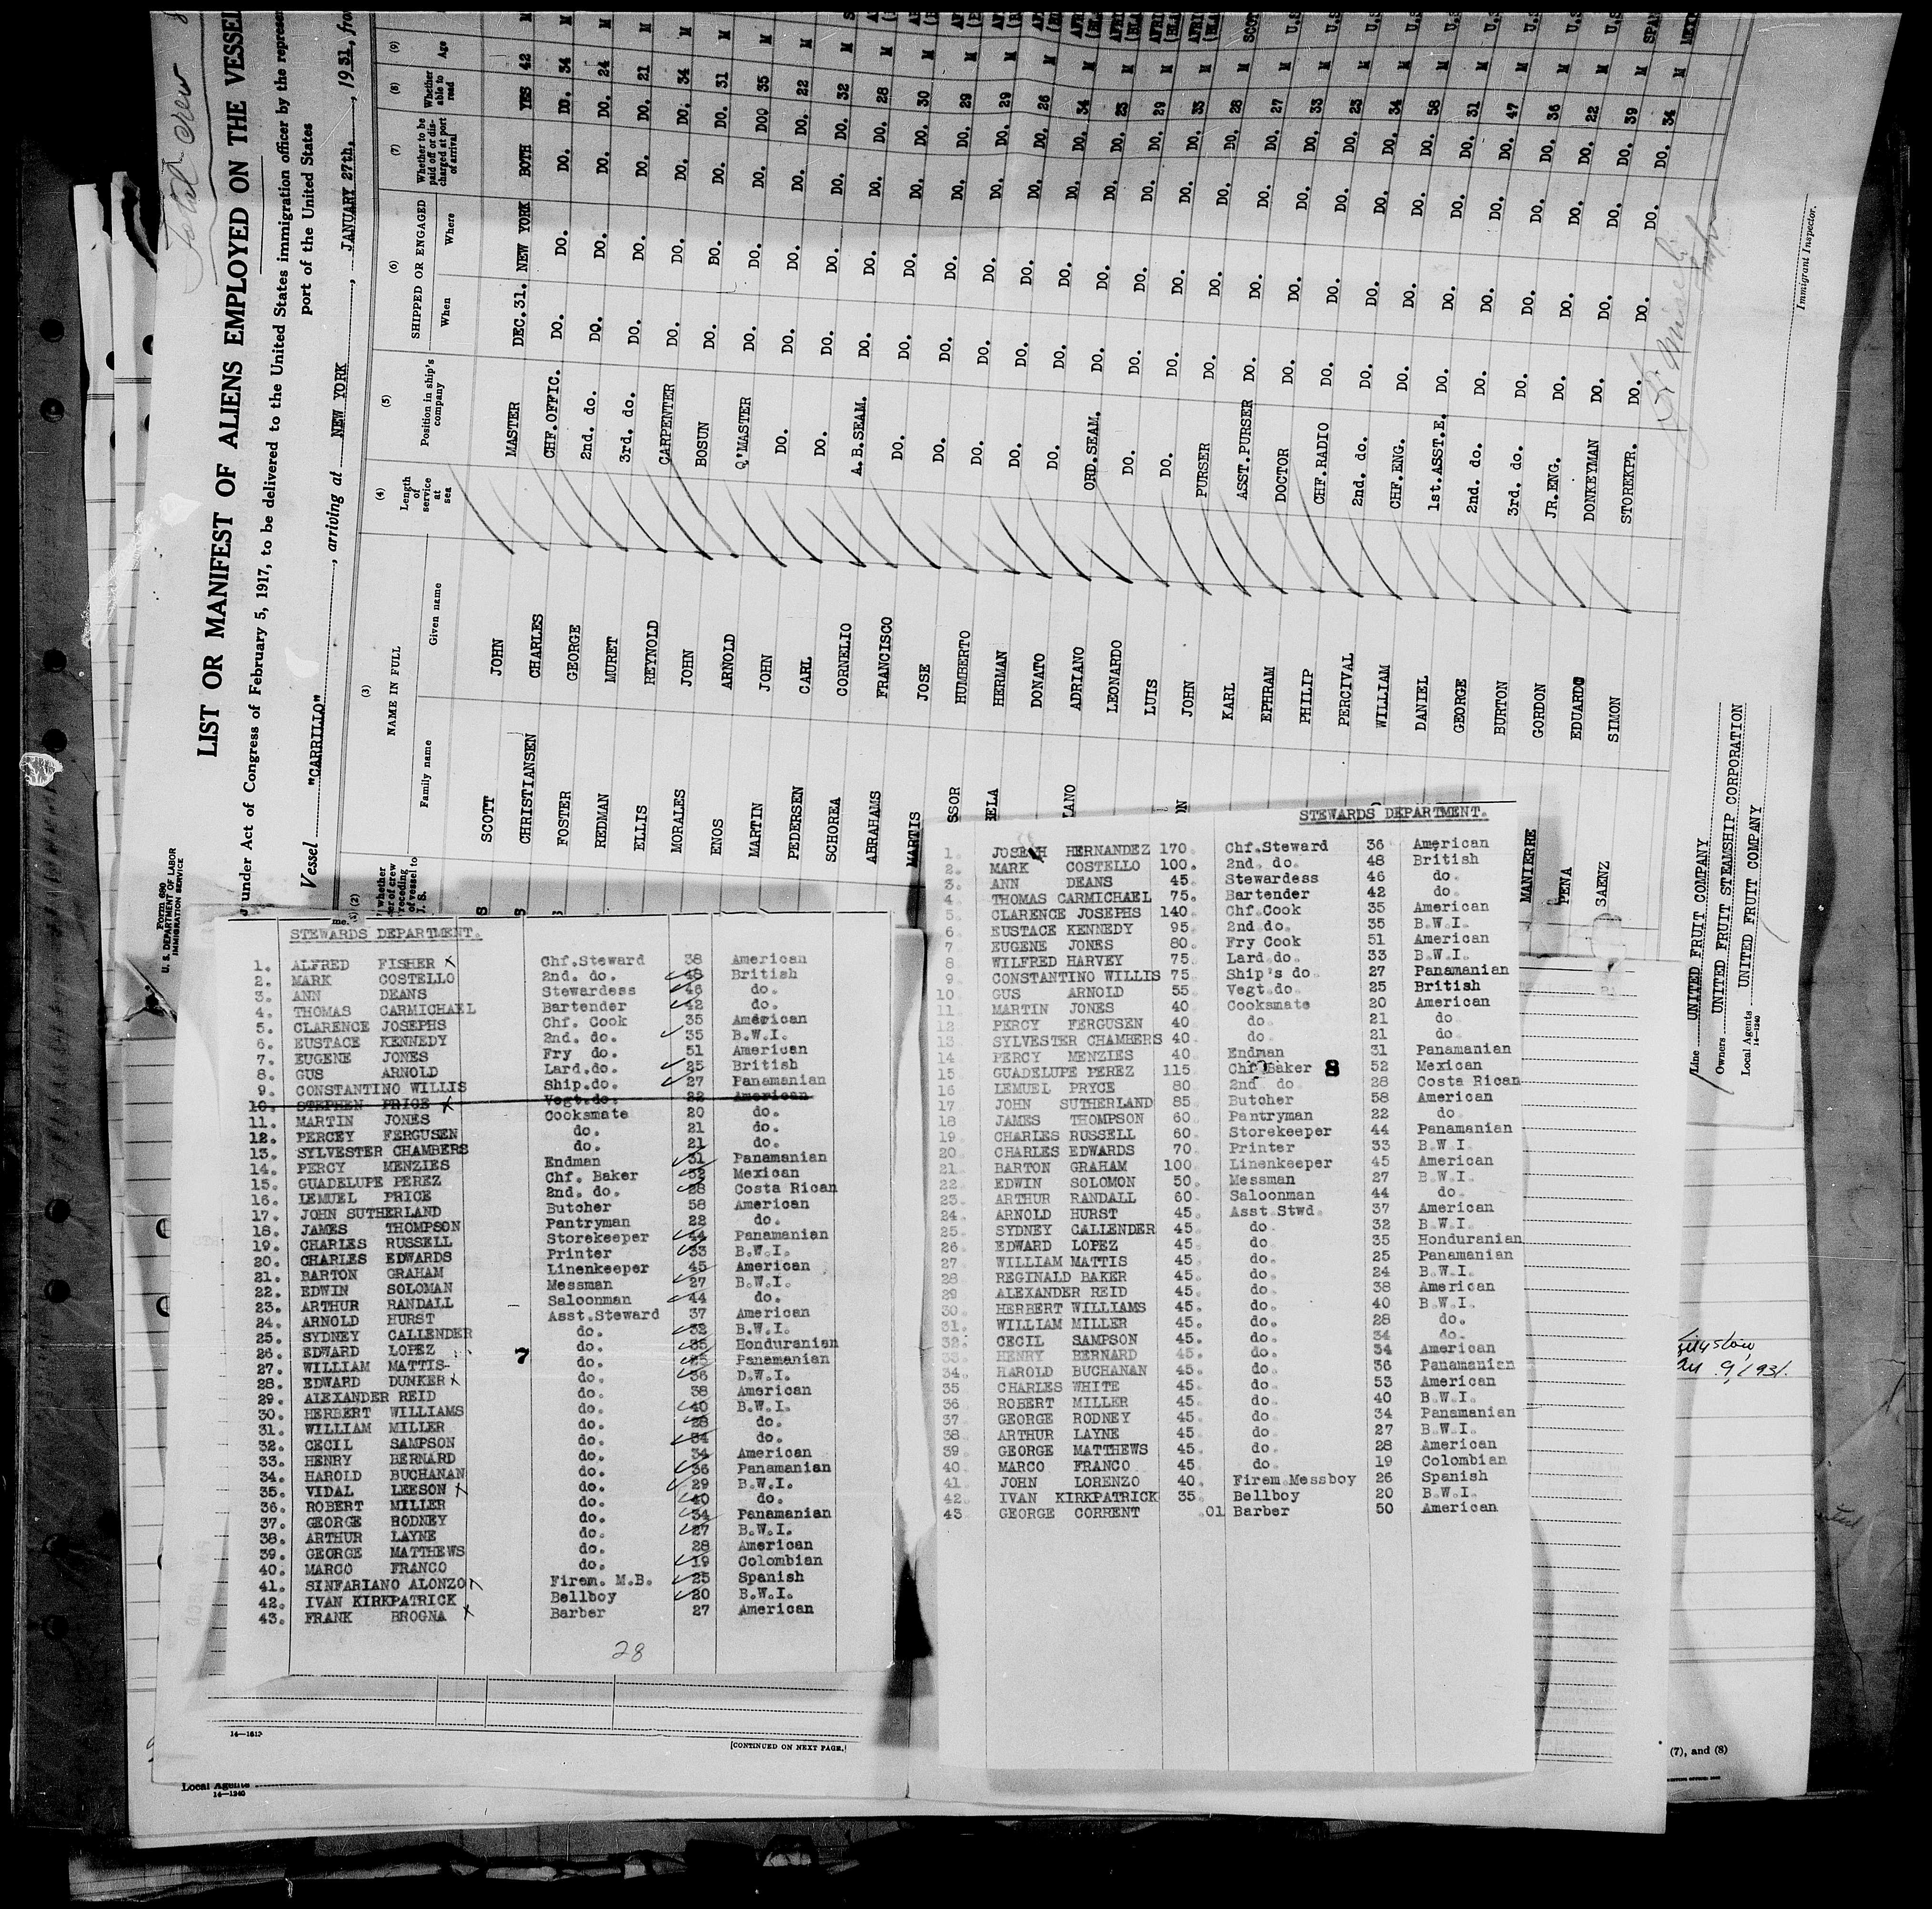 Total crew
Form 680
U. S. DEPARTMENT OF LABOR
IMMIGRATION SERVICE
LIST OR MANIFEST OF ALIENS EMPLOYED ON THE VESSEL
under Act of Congress of February 5, 1917, to be delivered to the United States immigration officer by the
port of the United States
Vessel "CARRILLO", arriving at NEW YORK, JANUARY 27th., 1931,
(2) (3) (4) (5) (6) (7) (8) (9)
NAME IN FULL
Family name Given name
Length of service at sea
Position in ship's company
SHIPPED OR ENGAGED
When Where
Whether to be paid off or discharged at port of arrival
Whether able to read
Age
SCOTT JOHN MASTER DEC.31. NEW YORK BOTH YES 42 M
CHRISTIANSEN CHARLES CHF.OFFIC. DO. DO. DO. DO. 34 M
FOSTER GEORGE 2nd. do. DO. DO. DO. DO. 24 M
REDMAN MURET 3rd. do. DO. DO. DO. DO. 21 M
ELLIS REYNOLD CARPENTER DO. DO. DO. DO. 34 M
MORALES JOHN BOSUN DO. DO. DO. DO. 31 M
ENOS ARNOLD Q'MASTER DO. DO. DO. DOO 35 M
MARTIN JOHN DO. DO. DO. DO. DO. 22 M
PEDERSEN CARL DO. DO. DO. DO. DO. 32 M
SCHOREA CORNELIO A.B.SEAM. DO. DO. DO. DO. 28 M
ABRAHAMS FRANCISCO DO. DO. DO. DO. DO. 30 M
MARTIS JOSE DO. DO. DO. DO. DO. 29 M
SSOR HUMBERTO DO. DO. DO. DO. DO. 29 M
ELA HERMAN DO. DO. DO. DO. DO. 26 M
DONATO DO. DO. DO. DO. DO. 34 M
LANO ADRIANO ORD.SEAM. DO. DO. DO. DO. 23 M
LEONARDO DO. DO. DO. DO. DO. 29 M
LUIS DO. DO. DO. DO. DO. 33 M
N JOHN PURSER DO. DO. DO. DO. 28 M
KARL ASST.PURSER DO. DO. DO. DO. 27 M
EPHRAM DOCTOR DO. DO. DO. DO. 33 M
PHILIP CHF.RADIO DO. DO. DO. DO. 23 M
PERCIVAL 2nd. do. DO. DO. DO. DO. 34 M
WILLIAM CHF.ENG. DO. DO. DO. DO. 58 M
DANIEL 1st.ASST.E. DO. DO. DO. DO. 31 M
GEORGE 2nd. do. DO. DO. DO. DO. 47 M
BURTON 3rd. do. DO. DO. DO. DO. 36 M
MANIERRE GORDON JR.ENG. DO. DO. DO. DO. 22 M
PENA EDUARDO DONKEYMAN DO. DO. DO. DO. 39 M
SAENZ SIMON STOREKPR. DO. DO. DO. DO. 34 M
Immigrant Inspector.
Line UNITED FRUIT COMPANY
Owners UNITED FRUIT STEAMSHIP CORPORATION
Local Agents UNITED FRUIT COMPANY
14—1240
STEWARDS DEPARTMENT.
1. ALFRED FISHER x Chf.Steward 38 American
2. MARK COSTELLO 2nd. do. 48 British
3. ANN DEANS Stewardess 46 do.
4. THOMAS CARMICHAEL Bartender 42 do.
5. CLARENCE JOSEPHS Chf. Cook 35 American
6. EUSTACE KENNEDY 2nd. do. 35 B.W.I.
7. EUGENE JONES Fry do. 51 American
8. GUS ARNOLD Lard.do. 25 British
9. CONSTANTINO WILLIS Ship.do. 27 Panamanian
10. STEPHEN PRICE x Vegt.do. 22 American
11. MARTIN JONES Cooksmate 20 do.
12. PERCEY FERGUSEN do. 21 do.
13. SYLVESTER CHAMBERS do. 21 do.
14. PERCY MENZIES Endman 31 Panamanian
15. GUADELUPE PEREZ Chf. Baker 52 Mexican
16. LEMUEL PRICE 2nd. do. 28 Costa Rican
17. JOHN SUTHERLAND Butcher 58 American
18. JAMES THOMPSON Pantryman 22 do.
19. CHARLES RUSSELL Storekeeper 44 Panamanian
20. CHARLES EDWARDS Printer 33 B.W.I.
21. BARTON GRAHAM Linenkeeper 45 American
22. EDWIN SOLOMAN Messman 27 B.W.I.
23. ARTHUR RANDALL Saloonman 44 do.
24. ARNOLD HURST Asst.Steward 37 American
25. SYDNEY CALLENDER do. 32 B.W.I.
26. EDWARD LOPEZ do. 35 Honduranian
27. WILLIAM MATTIS 7 do. 25 Panamanian
28. EDWARD DUNKER x do. 36 D.W.I.
29. ALEXANDER REID do. 38 American
30. HERBERT WILLIAMS do. 40 B.W.I.
31. WILLIAM MILLER do. 28 do.
32. CECIL SAMPSON do. 34 do.
33. HENRY BERNARD do. 34 American
34. HAROLD BUCHANAN do. 36 Panamanian
35. VIDAL LEESON x do. 29 B.W.I.
36. ROBERT MILLER do. 40 do.
37. GEORGE RODNEY do. 34 Panamanian
38. ARTHUR LAYNE do. 27 B.W.I.
39. GEORGE MATTHEWS do. 28 American
40. MARCO FRANCO do. 19 Colombian
41. SINFARIANO ALONZO x Firem. M.B. 25 Spanish
42. IVAN KIRKPATRICK Bellboy 20 B.W.I.
43. FRANK BROGNA x Barber 27 American
28
14—1613
[CONTINUED ON NEXT PAGE.]
Local Agents
14—1240
STEWARDS DEPARTMENT.
1. JOSEPH HERNANDEZ 170. Chf.Steward 36 American
2. MARK COSTELLO 100. 2nd. do. 48 British
3. ANN DEANS 45. Stewardess 46 do.
4. THOMAS CARMICHAEL 75. Bartender 42 do.
5. CLARENCE JOSEPHS 140. Chf.Cook 35 American
6. EUSTACE KENNEDY 95. 2nd do. 35 B.W.I.
7. EUGENE JONES 80. Fry Cook 51 American
8. WILFRED HARVEY 75. Lard.do. 33 B.W.I.
9. CONSTANTINO WILLIS 75. Ship's do. 27 Panamanian
10. GUS ARNOLD 55 Vegt.do. 25 British
11. MARTIN JONES 40 Cooksmate 20 American
12 PERCY FERGUSEN 40 do. 21 do.
13. SYLVESTER CHAMBERS 40. do. 21 do.
14 PERCY MENZIES 40. Endman 31 Panamanian
15. GUADELUPE PEREZ 115 Chf Baker 8 52 Mexican
16 LEMUEL PRYCE 80 2nd do 28 Costa Rican
17 JOHN SUTHERLAND 85. Butcher 58 American
18 JAMES THOMPSON 60. Pantryman 22 do
19. CHARLES RUSSELL 60. Storekeeper 44 Panamanian
20. CHARLES EDWARDS 70. Printer 33 B.W.I.
21. BARTON GRAHAM 100. Linenkeeper 45 American
22. EDWIN SOLOMON 50. Messman 27 B.W.I.
23. ARTHUR RANDALL 60. Saloonman 44 do.
24. ARNOLD HURST 45. Asst.Stwd. 37 American
25. SYDNEY CALLENDER 45. do. 32 B.W.I.
26. EDWARD LOPEZ 45. do. 35 Honduranian
27. WILLIAM MATTIS 45. do. 25 Panamanian
28 REGINALD BAKER 45. do. 24 B.W.I.
29 ALEXANDER REID 45. do. 38 American
30. HERBERT WILLIAMS 45. do. 40 B.W.I.
31. WILLIAM MILLER 45. do. 28 do.
32. CECIL SAMPSON 45. do. 34 do.
33. HENRY BERNARD 45. do. 34 American
34. HAROLD BUCHANAN 45. do. 36 Panamanian
35 CHARLES WHITE 45. do. 53 American
36 ROBERT MILLER 45. do. 40 B.W.I.
37. GEORGE RODNEY 45. do. 34 Panamanian
38. ARTHUR LAYNE 45. do. 27 B.W.I.
39. GEORGE MATTHEWS 45. do. 28 American
40. MARCO FRANCO 45. do. 19 Colombian
41 JOHN LORENZO 40. Firem.Messboy 26 Spanish
42. IVAN KIRKPATRICK 35. Bellboy 20 B.W.I.
43. GEORGE CORRENT .01 Barber 50 American
9, 1931.
(7), and (8)